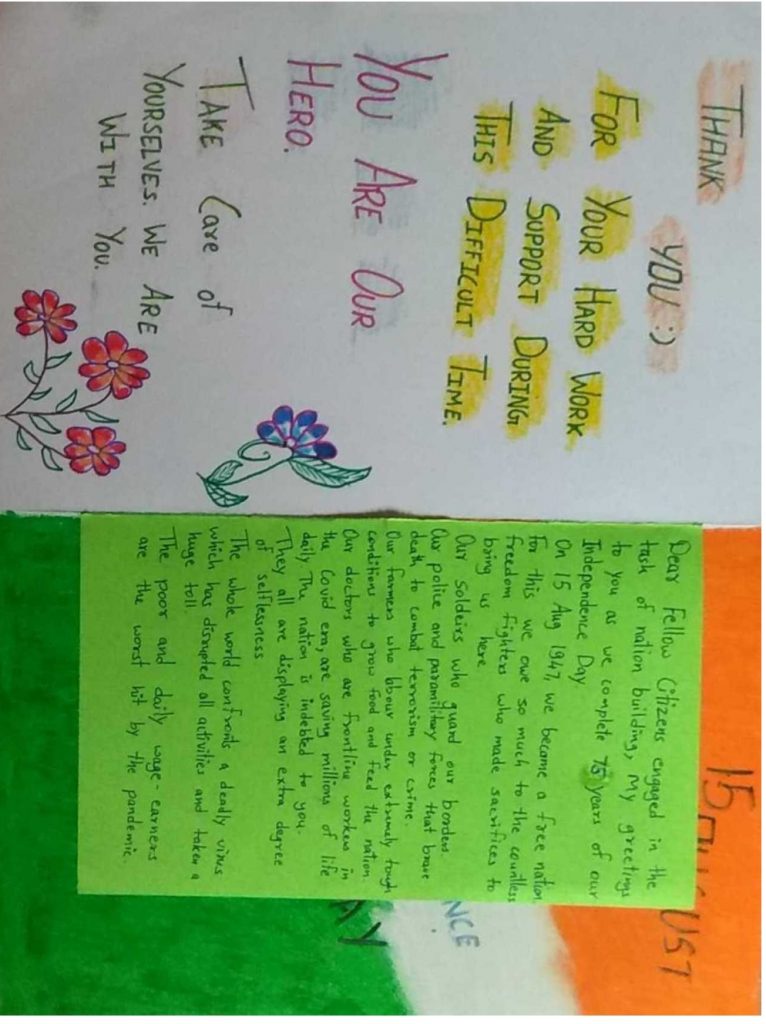 THANK
YOU :)
FOR YOUR HARD WORK
AND SUPPORT DURING
THIS DIFFICULT TIME.
YOU ARE OUR
HERO.
TAKE Care of
YOURSELVES. WE ARE
WITH YOU.
15 AUGUST
Dear Fellow Citizens engaged in the
task of nation building, My greetings
to you as we complete 75 years of our
Independence Day
On 15 Aug 1947, we became a free nation
for this we owe so much to the countless
freedom fighters who made sacrifices to
bring us here
Our soldeirs who guard our borders.
Our police and paramilitary forces that brave
death to combat terrorism or crime.
Our farmers who labour under extremely tough
conditions to grow food and feed the nation.
Our doctors who are frontline workers in
the Covid era, are saving millions of life
daily. The nation is indebted to you.
They all are displaying an extra degree
of selflessness
The whole world confronts a deadly virus
which has disrupted all activities and taken a
huge toll.
The poor and daily wage-earners
are the worst hit by the pandemic
NCE
AY